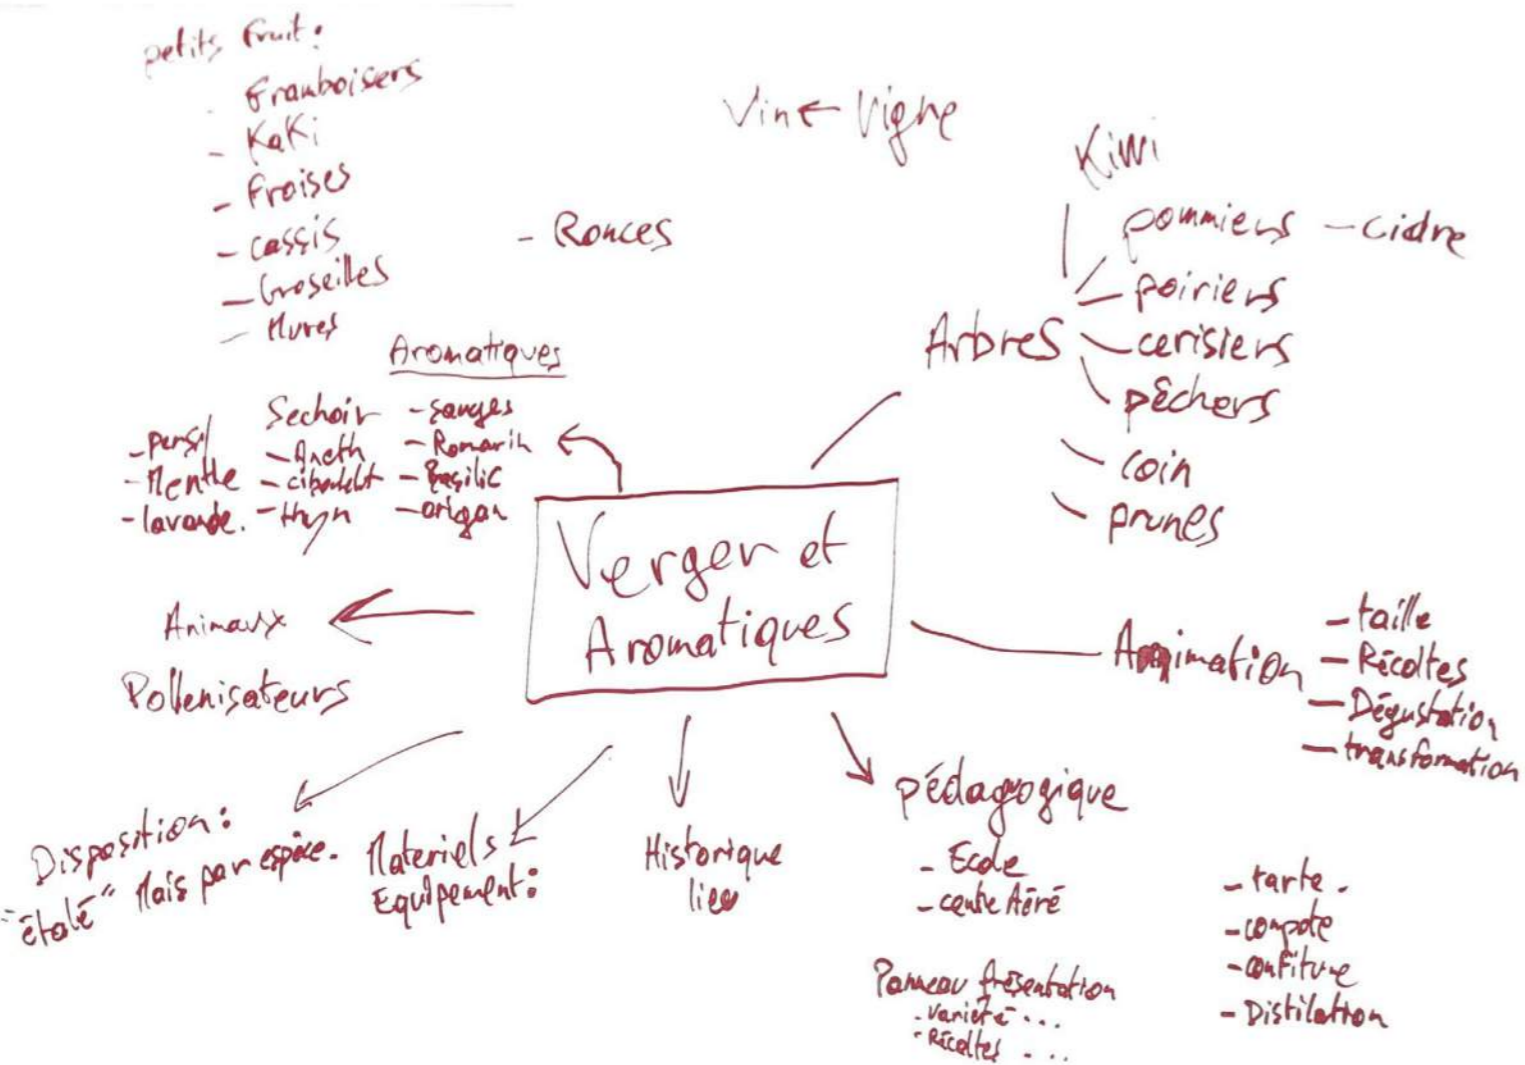 petits fruit:
- Framboisers
- KaKi
- Fraises
- cassis
- Groseilles
- Mures
- Ronces
Vin ← Vigne
Kiwi
pommiers - cidre
- poiriers
Arbres
- cerisiers
- pêchers
- coin
- prunes
Aromatiques
- persil
- Menthe
- lavande.
Sechoir
- Aneth
- thyn
- sauges
- Romarin
- Basilic
- origan
Verger et
Aromatiques
Animaux
Pollenisateurs
Animation
- taille
- Récoltes
- Dégustation
- transformation
Disposition:
"étalé" Mais par espèce.
Materiels
Equipement:
Historique
lieu
pédagogique
- Ecole
- centre Aéré
Panneau présentation
- variété ...
- Récoltes ...
- tarte.
- compote
- confiture
- Distilation